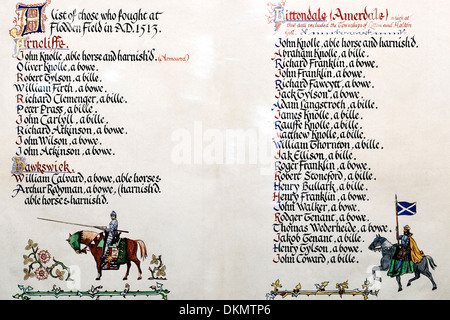 A list of those who fought at
Flodden Field in A.D. 1513.
Arncliffe.
John Knolle, able horse and harnish'd. (Armoured)
Oliver Knolle, a bowe.
Robert Tylson, a bille.
William Firth, a bowe.
Richard Clemenger, a bille.
Peter Prass, a bille.
John Carlyll, a bille.
Richard Atkinson, a bowe.
John Wilson, a bowe.
John Atkinson, a bowe.
Hawkswick.
William Calvard, a bowe, able horse &
Arthur Redyman, a bowe, (harnish'd.
able horse & harnish'd.
Littondale (Amerdale)
that date included the Townships of and Halton
Gill.
John Knolle, able horse and harnish'd.
Abraham Knolle, a bille.
Richard Franklin, a bille.
John Franklin, a bille.
Richard Fawcytt, a bille.
Jack Tylson, a bille.
Adam Langstroth, a bille.
James Knolle, a bille.
Rauffe Knolle, a bille.
Matthew Knolle, a bille.
William Thornton, a bille.
Jak Ellison, a bille.
Roger Franklin, a bille.
Robert Stoneford, a bille.
Henry Bullark, a bille.
Henry Franklin, a bowe.
John Walker, a bowe.
Rodger Tenant, a bowe.
Thomas Wederheide, a bowe.
Jakob Tenant, a bowe.
Henry Tylson, a bowe.
John Coward, a bille.
alamy stock photo
DKMTP6
www.alamy.com